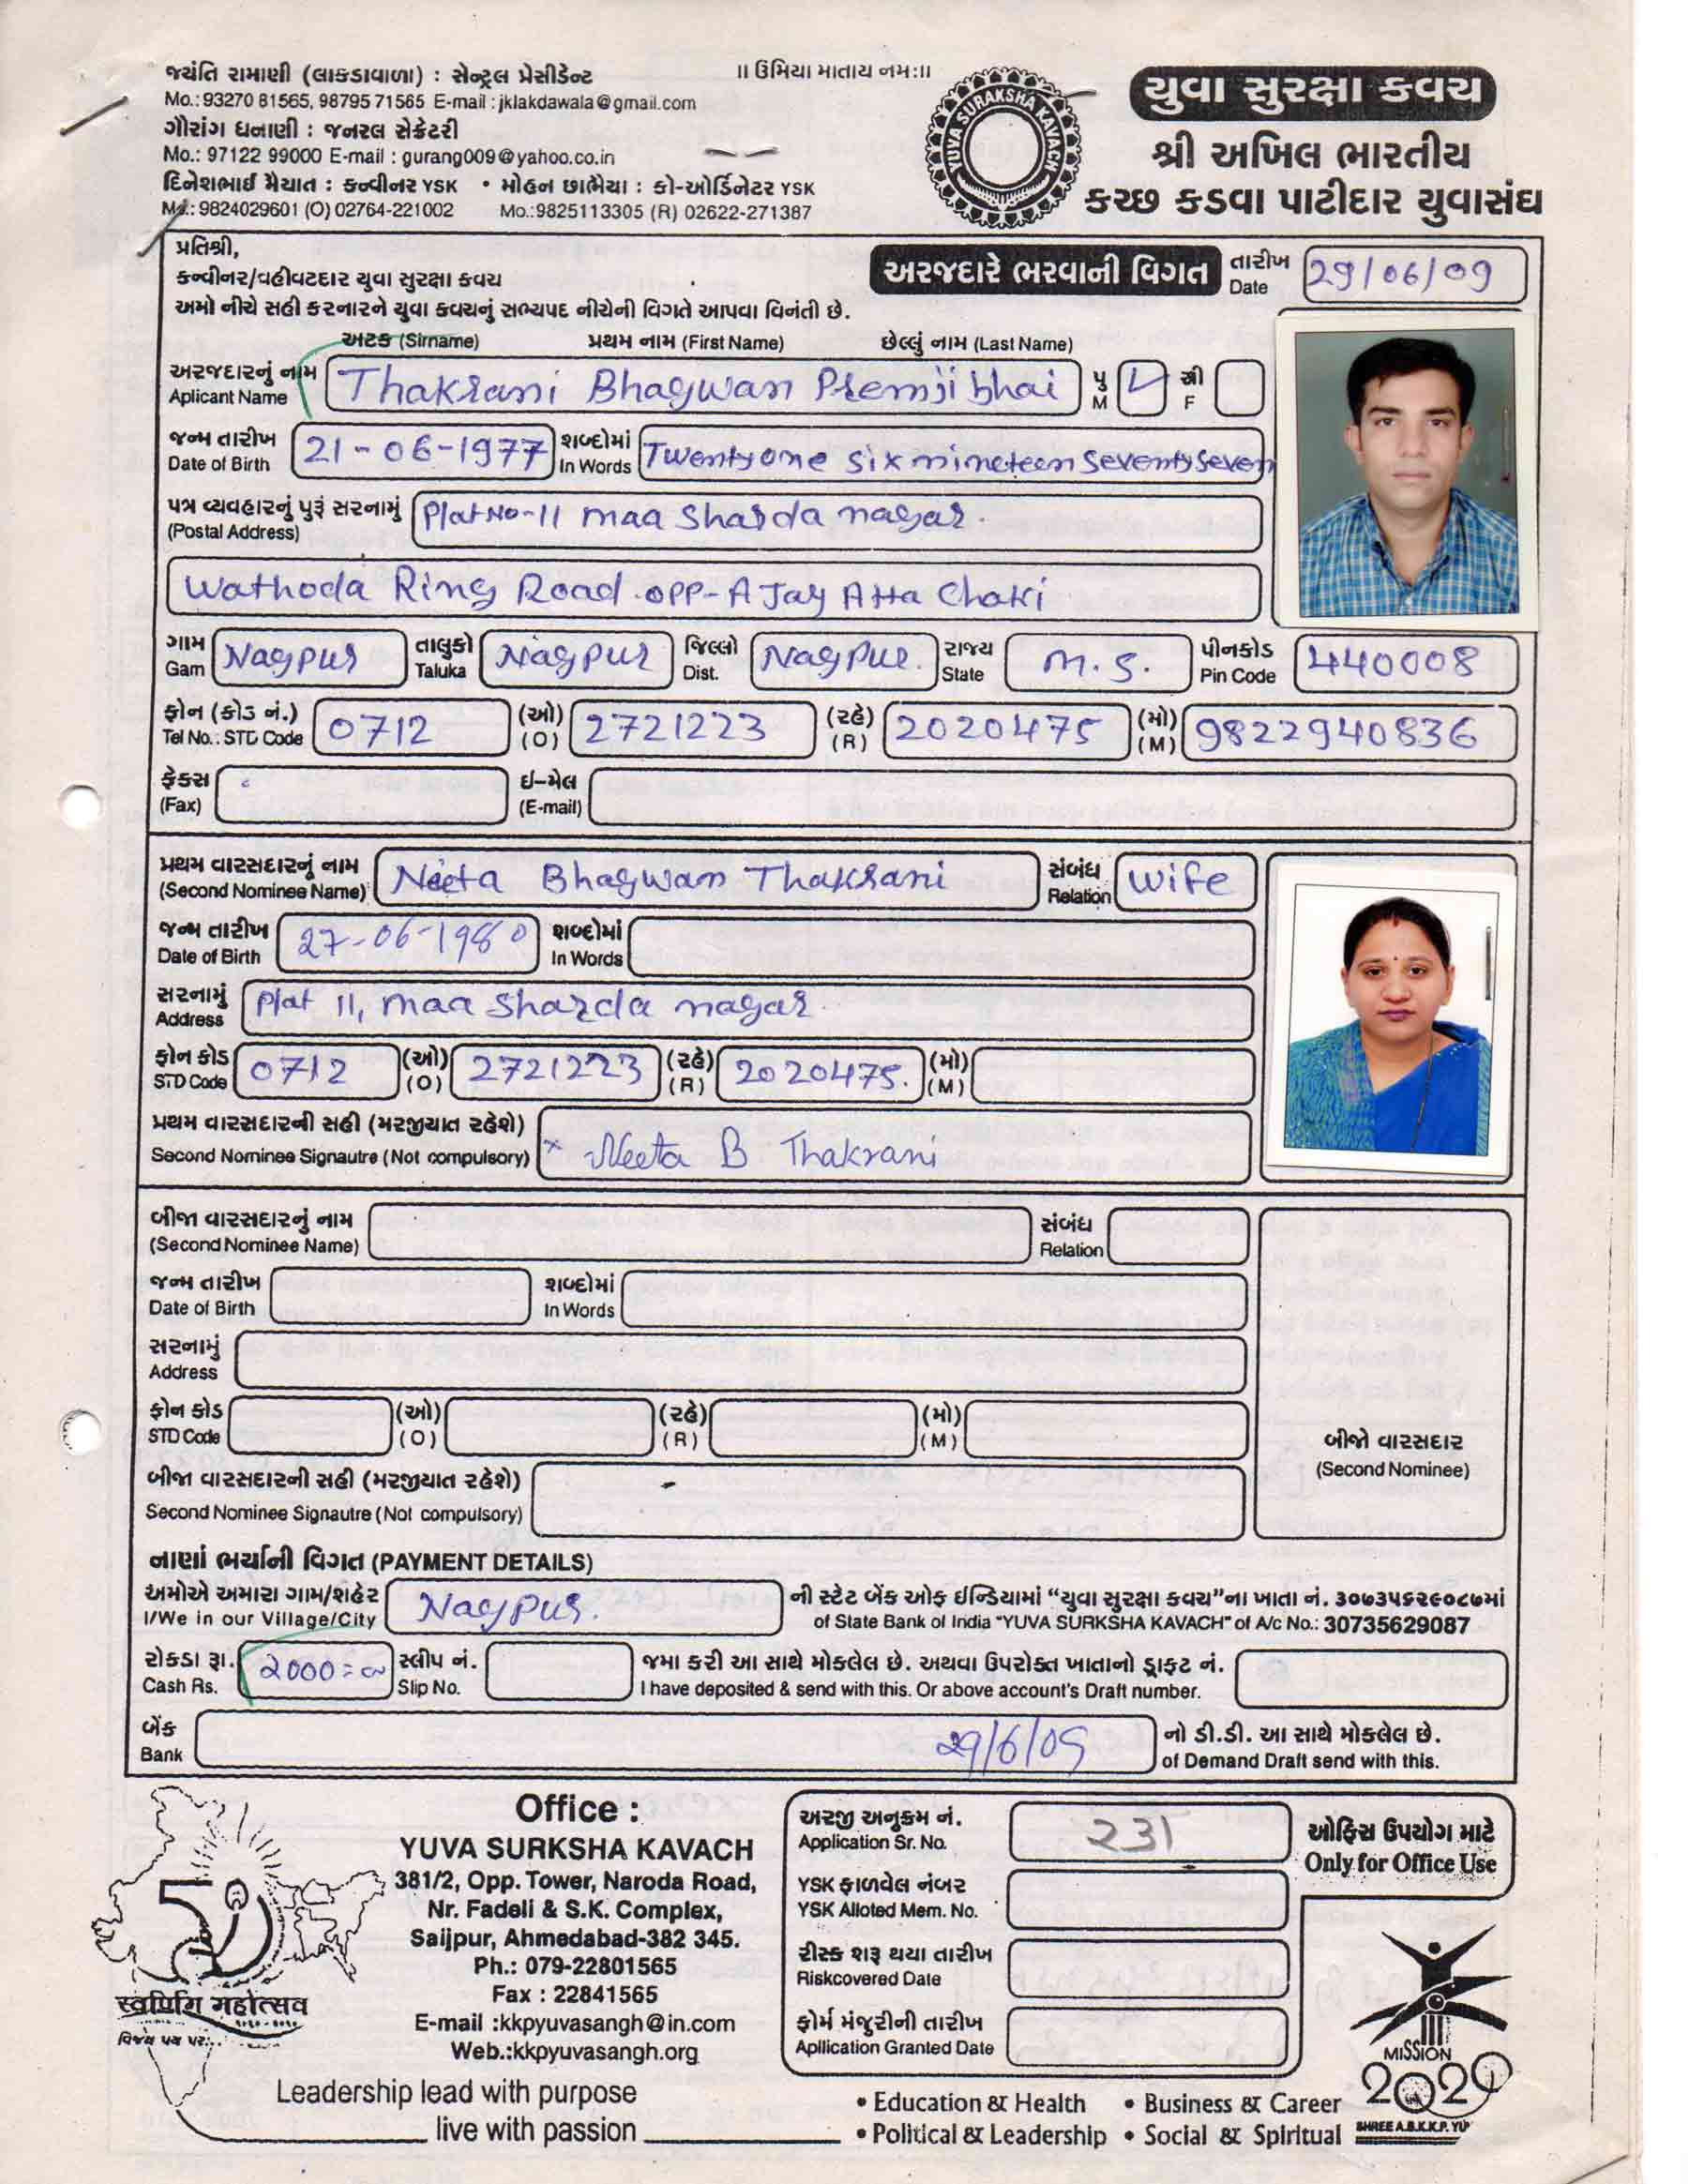 જયંતિ રામાણી (લાકડાવાળા) : સેન્ટ્રલ પ્રેસીડેન્ટ
Mo.: 93270 81565, 98795 71565 E-mail : jklakdawala@gmail.com
ગૌરાંગ ધનાણી : જનરલ સેક્રેટરી
Mo.: 97122 99000 E-mail : gurang009@yahoo.co.in
દિનેશભાઈ મૈયાત : કન્વીનર YSK • મોહન છાભૈયા : કો-ઓર્ડિનેટર YSK
Mo.: 9824029601 (O) 02764-221002 Mo.:9825113305 (R) 02622-271387
॥ ઉમિયા માતાય નમઃ॥
YUVA SURAKSHA KAVACH
યુવા સુરક્ષા કવચ
શ્રી અખિલ ભારતીય
કચ્છ કડવા પાટીદાર યુવાસંઘ
પ્રતિશ્રી,
કન્વીનર/વહીવટદાર યુવા સુરક્ષા કવચ
અમો નીચે સહી કરનારને યુવા કવચનું સભ્યપદ નીચેની વિગતે આપવા વિનંતી છે.
અરજદારે ભરવાની વિગત તારીખ Date 29/06/09
અટક (Sirname) પ્રથમ નામ (First Name) છેલ્લું નામ (Last Name)
અરજદારનું નામ Aplicant Name Thakrani Bhagwan Premjibhai પુ M સ્ત્રી F
જન્મ તારીખ Date of Birth 21-06-1977 શબ્દોમાં In Words Twentyone six nineteen seventy seven
પત્ર વ્યવહારનું પુરૂં સરનામું (Postal Address) Plat No-11 maa Sharda nagar.
Wathoda Ring Road. opp- AJay Atta Chaki
ગામ Gam Nagpur તાલુકો Taluka Nagpur જિલ્લો Dist. Nagpur. રાજ્ય State M. S. પીનકોડ Pin Code 440008
ફોન (કોડ નં.) Tel No.: STD Code 0712 (ઓ) (O) 2721223 (રહે) (R) 2020475 (મો) (M) 9822940836
ફેક્સ (Fax) ઈ-મેલ (E-mail)
પ્રથમ વારસદારનું નામ (Second Nominee Name) Neeta Bhagwan Thakrani સંબંધ Relation Wife
જન્મ તારીખ Date of Birth 27-06-1980 શબ્દોમાં In Words
સરનામું Address Plat 11, maa Sharda nagar.
ફોન કોડ STD Code 0712 (ઓ) (O) 2721223 (રહે) (R) 2020475. (મો) (M)
પ્રથમ વારસદારની સહી (મરજીયાત રહેશે)
Second Nominee Signautre (Not compulsory) x Neeta B Thakrani
બીજા વારસદારનું નામ (Second Nominee Name) સંબંધ Relation
જન્મ તારીખ Date of Birth શબ્દોમાં In Words
સરનામું Address
ફોન કોડ STD Code (ઓ) (O) (રહે) (R) (મો) (M)
બીજો વારસદાર
(Second Nominee)
બીજા વારસદારની સહી (મરજીયાત રહેશે)
Second Nominee Signautre (Not compulsory)
નાણાં ભર્યાની વિગત (PAYMENT DETAILS)
અમોએ અમારા ગામ/શહેર I/We in our Village/City Nagpur. ની સ્ટેટ બેંક ઓફ ઈન્ડિયામાં “યુવા સુરક્ષા કવચ”ના ખાતા નં. ૩૦૭૩૫૬૨૯૦૮૭માં
of State Bank of India "YUVA SURKSHA KAVACH" of A/c No.: 30735629087
રોકડા રૂા. Cash Rs. 2000=00 સ્લીપ નં. Slip No. જમા કરી આ સાથે મોકલેલ છે. અથવા ઉપરોક્ત ખાતાનો ડ્રાફ્ટ નં.
I have deposited & send with this. Or above account's Draft number.
બેંક Bank 29/6/09 નો ડી.ડી. આ સાથે મોકલેલ છે.
of Demand Draft send with this.
Office :
YUVA SURKSHA KAVACH
381/2, Opp. Tower, Naroda Road,
Nr. Fadeli & S.K. Complex,
Saijpur, Ahmedabad-382 345.
Ph.: 079-22801565
Fax : 22841565
E-mail :kkpyuvasangh@in.com
Web.:kkpyuvasangh.org
50
स्वर्णिम महोत्सव
વિજય પથ પર...
Leadership lead with purpose
live with passion
અરજી અનુક્રમ નં. Application Sr. No. 231
ઓફિસ ઉપયોગ માટે
Only for Office Use
YSK ફાળવેલ નંબર
YSK Alloted Mem. No.
રીસ્ક શરૂ થયા તારીખ
Riskcovered Date
ફોર્મ મંજુરીની તારીખ
Apllication Granted Date
MISSION
2020
SHREE A.B.K.K.P. YU
• Education & Health • Business & Career
• Political & Leadership • Social & Spiritual